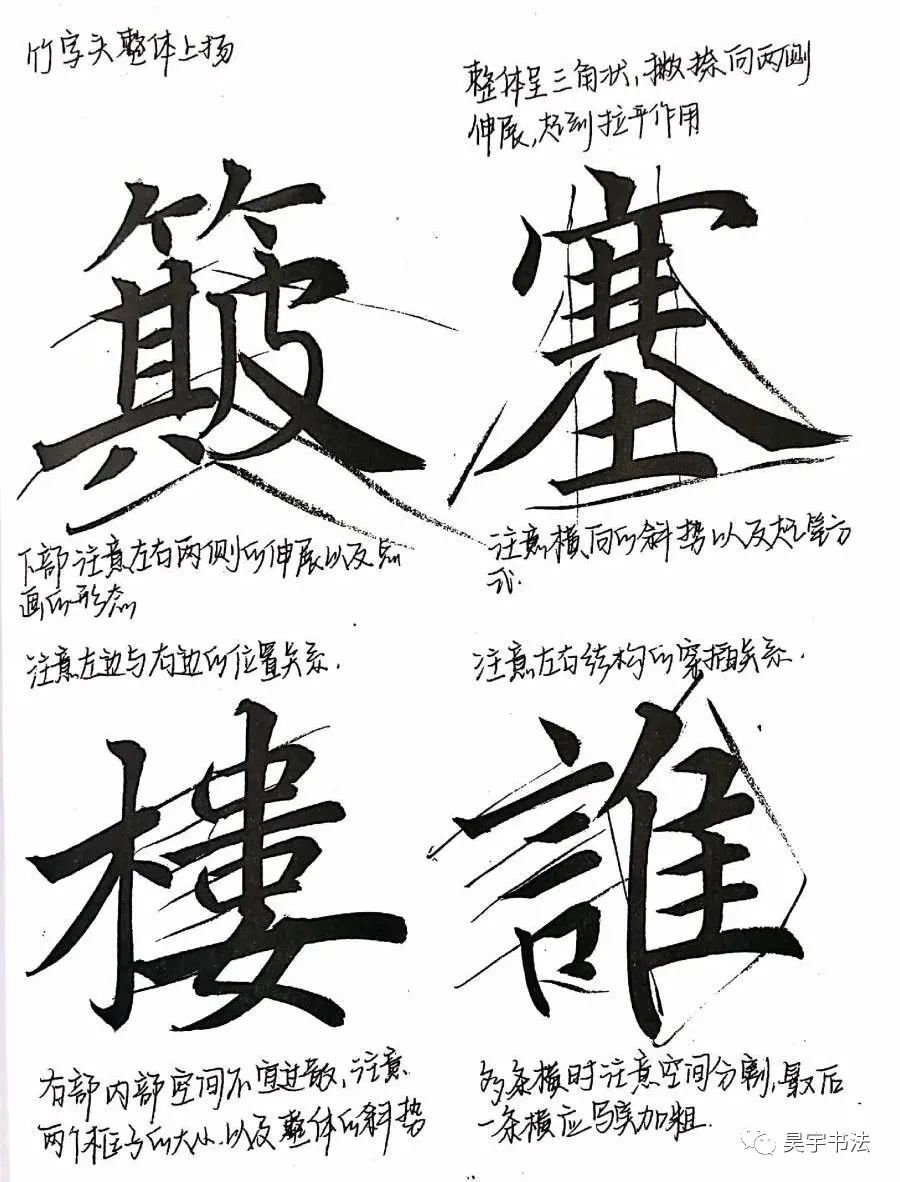 竹字头整体上扬
整体呈三角状，撇捺向两侧
伸展，起到拉平作用
簸
塞
下部注意左右两侧的伸展以及点
画的形态
注意横向的斜势以及起笔方
式.
注意左边与右边的位置关系.
注意左右结构的穿插关系.
樓
誰
右部内部空间不宜过散，注意
两个框子的大小.以及整体的斜势
多条横时注意空间分割，最后
一条横应写实加粗.
昊宇书法